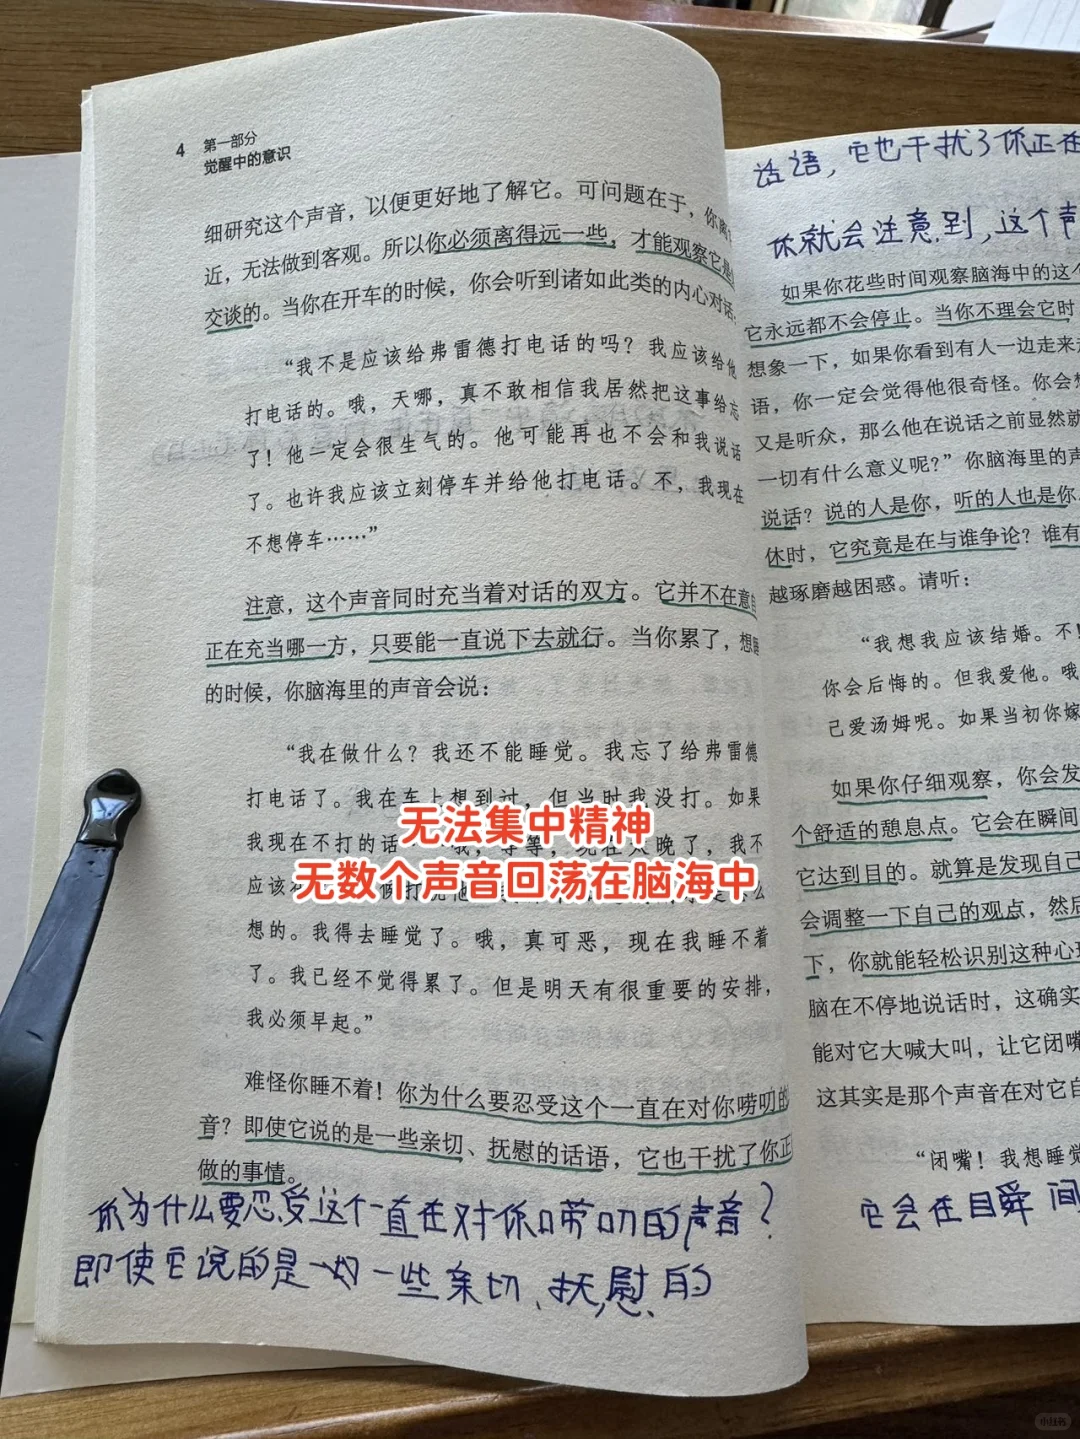 4 第一部分
觉醒中的意识
细研究这个声音，以便更好地了解它。可问题在于，你离
近，无法做到客观。所以你必须离得远一些，才能观察它是
交谈的。当你在开车的时候，你会听到诸如此类的内心对话：
“我不是应该给弗雷德打电话的吗？我应该给他
打电话的。哦，天哪，真不敢相信我居然把这事给忘
了！他一定会很生气的。他可能再也不会和我说话
了。也许我应该立刻停车并给他打电话。不，我现在
不想停车……”
注意，这个声音同时充当着对话的双方。它并不在意自
正在充当哪一方，只要能一直说下去就行。当你累了，想睡
的时候，你脑海里的声音会说：
“我在做什么？我还不能睡觉。我忘了给弗雷德
打电话了。我在车上想到过，但当时我没打。如果
我现在不打的话
晚了，我不
应该
想的。我得去睡觉了。哦，真可恶，现在我睡不着
了。我已经不觉得累了。但是明天有很重要的安排，
我必须早起。”
难怪你睡不着！你为什么要忍受这个一直在对你唠叨的
音？即使它说的是一些亲切、抚慰的话语，它也干扰了你正
做的事情。
你为什么要忍受这个一直在对你唠叨的声音？
即使它说的是一些亲切、抚慰的
无法集中精神
无数个声音回荡在脑海中
话语，它也干扰了你正在
你就会注意到，这个声
如果你花些时间观察脑海中的这个
它永远都不会停止。当你不理会它时
想象一下，如果你看到有人一边走来
语，你一定会觉得他很奇怪。你会想
又是听众，那么他在说话之前显然就
一切有什么意义呢？”你脑海里的声
说话？说的人是你，听的人也是你
休时，它究竟是在与谁争论？谁有
越琢磨越困惑。请听：
“我想我应该结婚。不！
你会后悔的。但我爱他。哦
己爱汤姆呢。如果当初你嫁
如果你仔细观察，你会发
个舒适的憩息点。它会在瞬间
它达到目的。就算是发现自己
会调整一下自己的观点，然后
下，你就能轻松识别这种心理
脑在不停地说话时，这确实
能对它大喊大叫，让它闭嘴
这其实是那个声音在对它自
“闭嘴！我想睡觉
它会在自瞬间
小红书